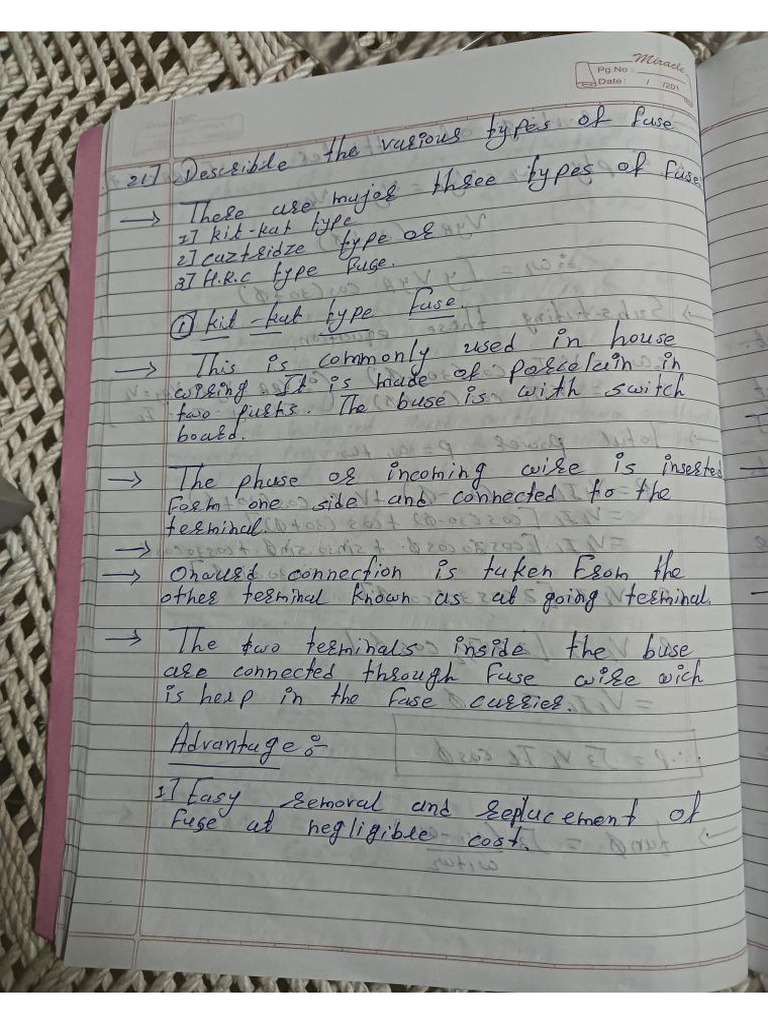 Miracle
Pg.No :
Date : / /201
21] Describle the various types of fuse
→ There are major three types of fuse
1] kit-kat type
2] caztridze type or
3] H.R.C type fuse.
① kit-kat type Fuse.
→ This is commonly used in house
wiring It is made of porcelain in
two parts. The base is with switch
board.
→ The phase or incoming wire is inserted
form one side and connected to the
terminal.
→
→ connection is taken From the
other terminal known as at going terminal.
→ The two terminals inside the base
are connected through fuse wire wich
is help in the fuse carrier.
Advantage :-
1] Easy removal and replacement of
fuse at negligible cost.